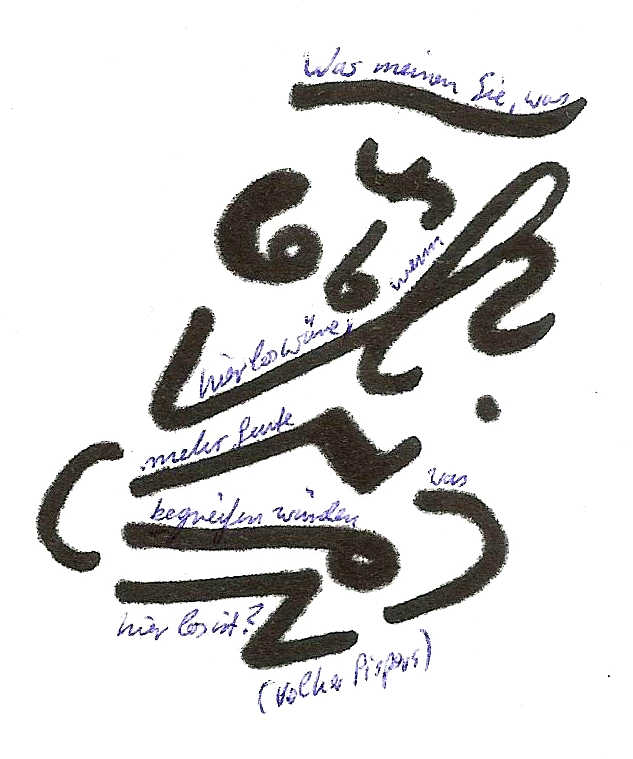 Was meinen Sie, was
hier los wäre, wenn
mehr Leute
begreifen würden
was
hier los ist?
(Volker Pispers)